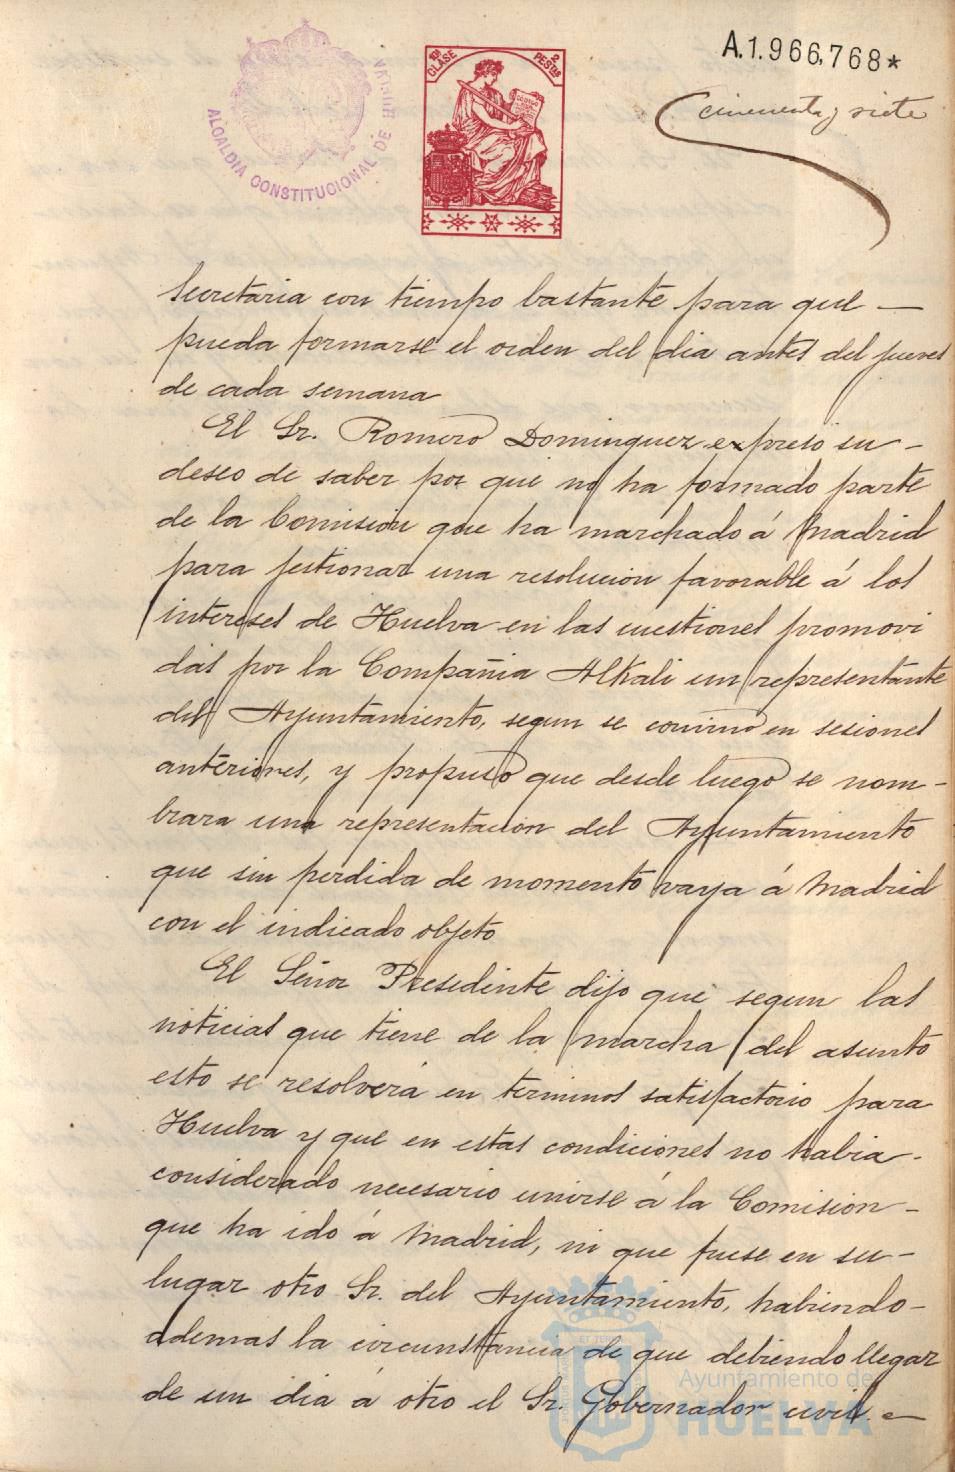 ALCALDIA CONSTITUCIONAL DE HUELVA
10ª CLASE
2 PESTAS
A.1.966,768*
cincuenta y siete
Secretaria con tiempo bastante para que —
pueda formarse el orden del dia antes del jueves
de cada semana
El Sr. Romero Dominguez expresó su -
deseo de saber por que no ha formado parte
de la Comisión que ha marchado á Madrid
para gestionar una resolucion favorable á los
intereses de Huelva en las cuestiones promovi
das por la Compañia Alkali un representante
del Ayuntamiento, segun se convino en sesiones
anteriores, y propuso que desde luego se nom-
brara una representacion del Ayuntamiento
que sin perdida de momento vaya á Madrid
con el indicado objeto
El Señor Presidente dijo que segun las
noticias que tiene de la marcha del asunto
esto se resolverá en terminos satisfactorio para
Huelva y que en estas condiciones no habia -
considerado necesario unirse á la Comision -
que ha ido á Madrid, ni que fuese en su -
lugar otro Sr. del Ayuntamiento, habiendo -
ademas la circunstancia de que debiendo llegar
de un dia á otro el Sr. Gobernador civil —
Ayuntamiento de
HUELVA